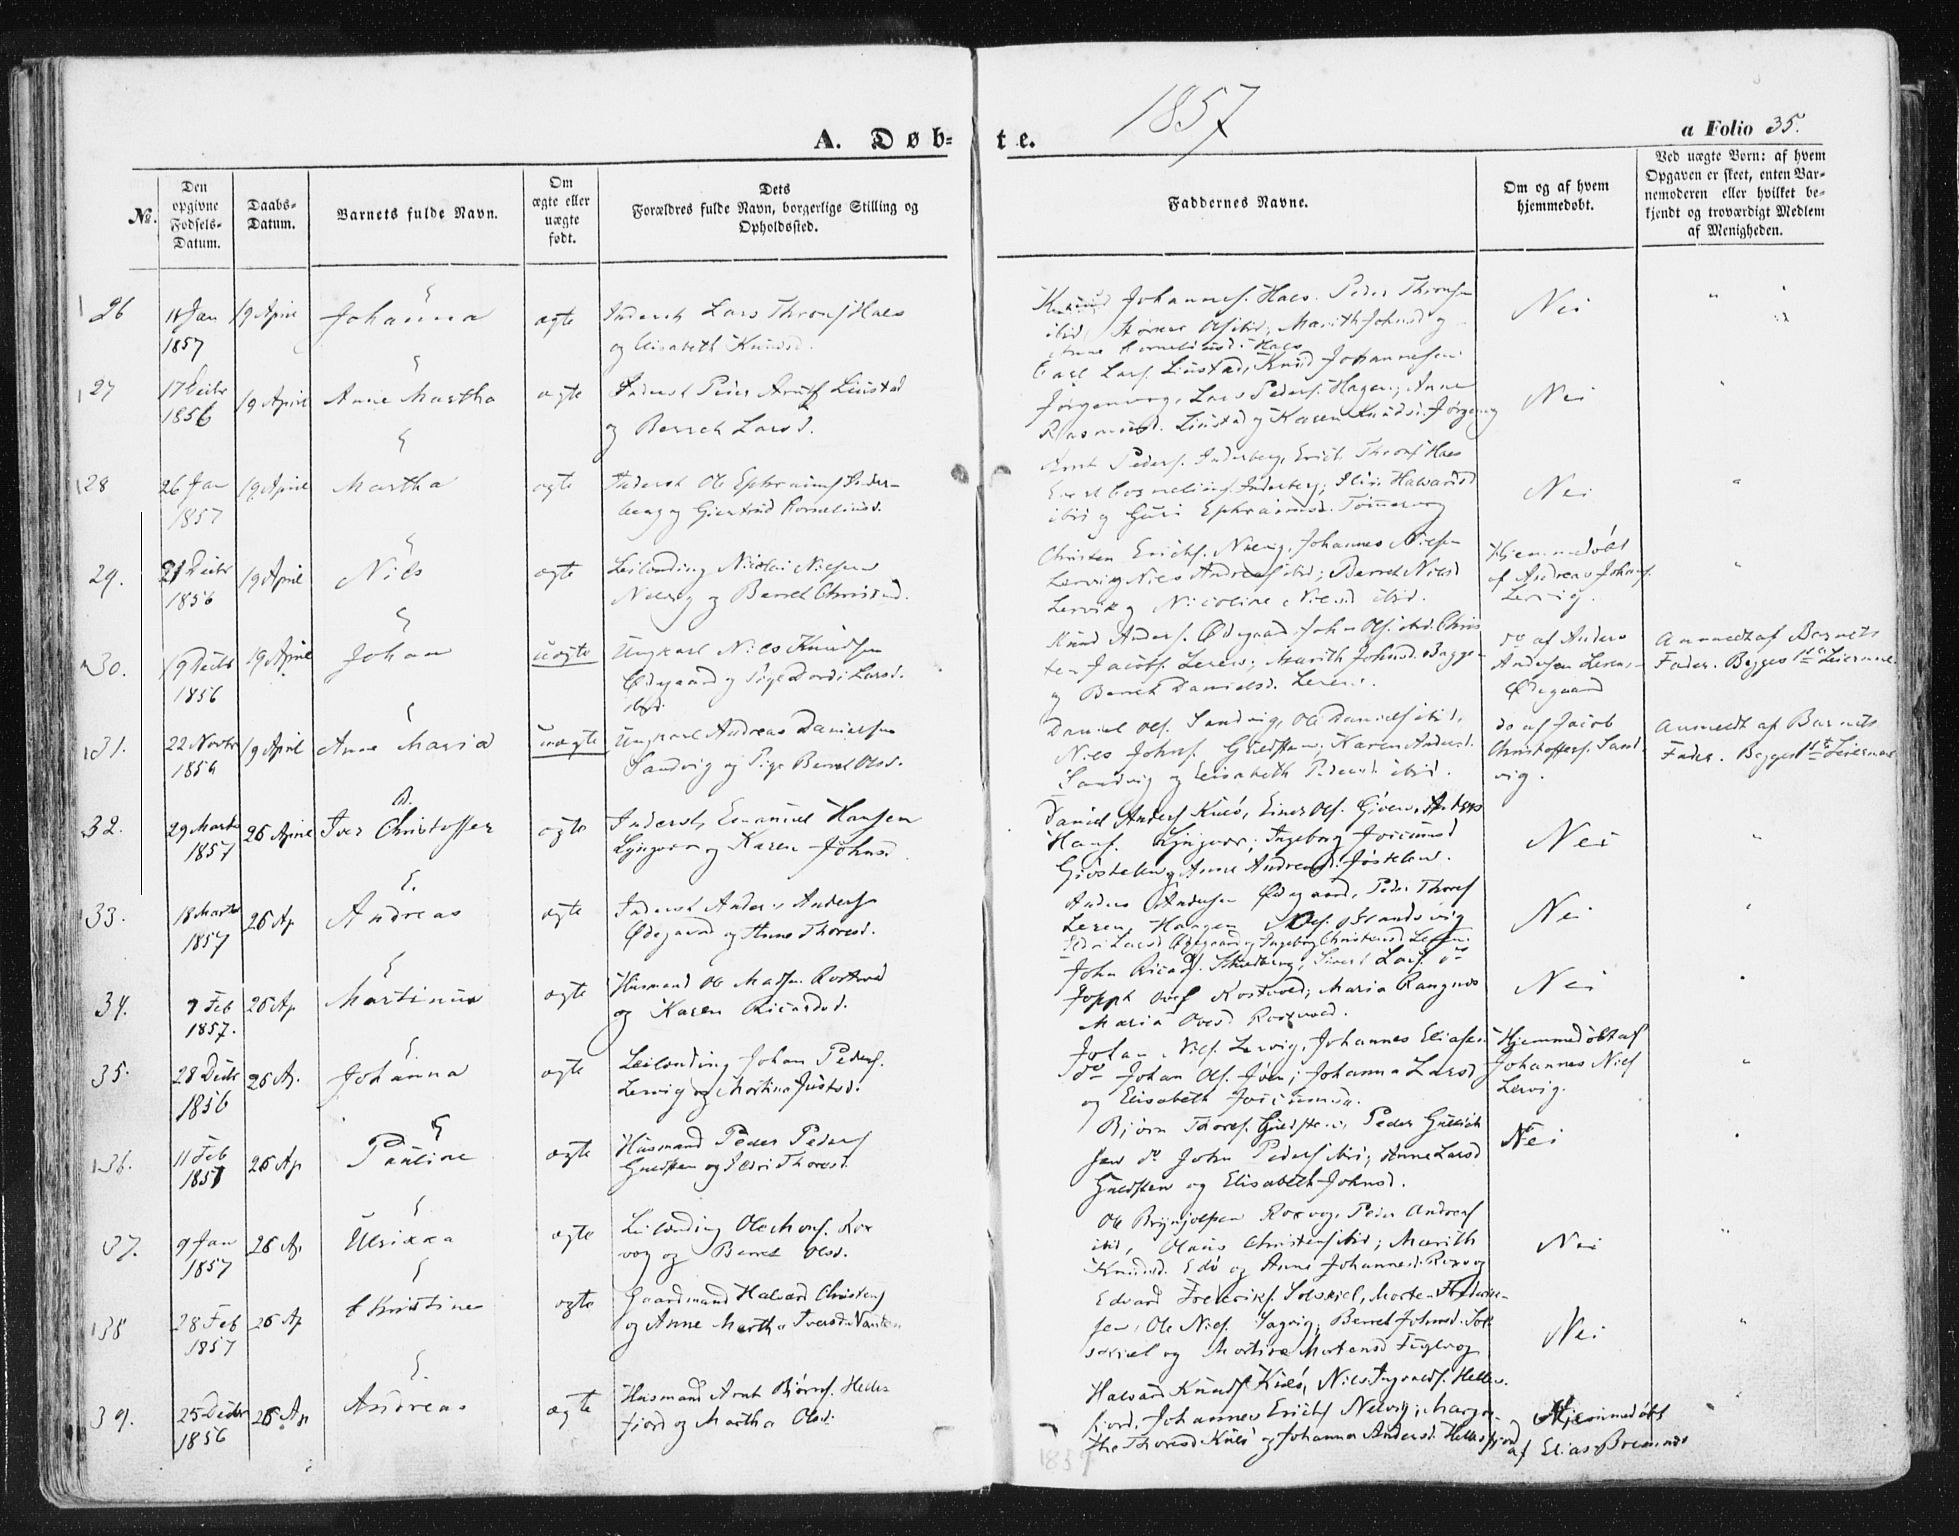 1857
A. Døb-
te.
a Folio 35.
No.
Den
opgivne
Fødsels-
Datum.
Daabs-
Datum.
Barnets fulde Navn.
Om
ægte eller
uægte
født.
Dets
Forældres fulde Navn, borgerlige Stilling og
Opholdssted.
Faddernes Navne.
Om og af hvem
hjemmedøbt.
Ved uægte Børn: af hvem
Opgaven er skeet, enten Bar-
nemoderen eller hvilket be-
kjendt og troværdigt Medlem
af Menigheden.
26
Jan
1857
19 April
Johanna
ægte
Inderst Lars Throns Haes
og Elisabeth Knudsd.
Johannes. Haes. Peder Thronsen
ibid, Olsibid; Marith Johnsd og
Anne Corneliusd. Haes
Nei
27
17 Decbr
1856
19 April
Anne Martha
ægte
Inderst Peder Liustad
og Berret Larsd.
Carl Lars. Liustad, Knud Johannesen
Jørgenvog, Lars Peders. Hagen; Anne
Rasmusd. Liustad og Karen Knudsd. Jørgenvog
Nei
28
26 Jan
1857
19 April
Martha
ægte
Inderst Ole Ephraims Inder-
berg og Giertrud Corneliusd.
Arnt Peders. Inderberg, Erich Throns Haes
Corneliuss Inderberg; Halvorsd
ibid og Guri Ephraimsd. Tømmervog
Nei
29.
21 Decbr
1856
19 April
Nils
ægte
Leilending Nicolai Nielsen
og Berret Christensd.
Christen Erichs. Johannes Nielsen
Lervig Nils Andreas ibid; Berret Nilsd
Lervik og Nicoline Nilsd ibid.
Hjemmedøbt
af Andreas Johns.
Lervig.
30.
19 Decbr
1856
19 April
Johan
uægte
Ungkarl Nils Knudsen
Ødegaard og Pige Dordi Larsd.
ibid.
Knud Anders. Ødegaard. John Ols. ibid. Chris
ten Jacobs. Leren; Marith Johnsd. Bagge-
og Berret Danielsd. Leren.
do af Anders
Andersen Leren-
Ødegaard
Anmeldt af Barnets
Fader. Begges 1ste Leiermaal
31.
22 Novbr
1856
19 April
Anne Maria
uægte
Ungkarl Andreas Danielsen
Sandvig og Pige Berret Olsd.
Daniel Ols. Sandvig, Ole Daniels ibid,
Nils Johns. Guldsten; Karen Andersd.
Sandvig og Elisabeth Pedersd. ibid.
do af Jacob
Christoffers. Sand
vig.
Anmeldt af Barnets
Fader. Begges 1ste Leiermaal
32.
29 Marts
1857
26 April
Iver Christoffer
ægte
Inderst, Emanuel Hansen
Lyngvær og Karen Johnsd
Daniel Anders Kulø, Einer Ols. Gjøen, Anders
Hans. Lyngvær; Ingeborg Jocumsd
og Anne Andreasd.
Nei
33.
18 Marts
1857
26 Ap
Andreas
ægte
Inderst Anders Anders
Ødegaard og Anne Thoresd.
Anders Andersen Ødegaard, Peder Thores
Leren, Ols.
Larsd Ødegaard og Ingeborg Christensd Leren.
Nei
34.
7 Feb
1857.
26 Ap
Martinus
ægte
Husmand Ole Madsen Rostvold
og Karen Ricardsd.
John Ricards. Lars. do
Rostvold; Maria
Maria Rostvold.
Nei
35.
28 Decbr
1856
26 A.
Johanna
ægte
Leilending Johan Peders.
Lervig og Martina Justsd.
Johan Nils. Lervig, Johannes Eliasen
do Johan Ols. Jøen; Johanna Larsd
og Elisabeth Jocumsd.
Hjemmedøbt af
Johannes Niels
Lervig.
36.
11 Feb
1857
26 Ap
Pauline
ægte
Husmand Peder Peders
Guldsten og Thoresd.
Bjørn Thores. Guldsten, Peder Gullich
sen do John Peders ibid; Anne Larsd
Guldsten og Elisabeth Johnsd.
Nei
37.
9 Jan
1857
26 Ap
Ulrikka
ægte
Leilending Ole Rox
vog og Berret Olsd.
Ole Brynjolfsen Roxvog, Peder Andreas
ibid, Olaus Christens ibid; Marith
Knudsd. Edø og Anne Johannesd. Roxvog
Nei
38
28 Feb
1857
26 Ap
Kristine
ægte
Gaardmand Halvard Christens
og Anne Martha Iversd.
Edvard Frederiks. Solskiel, Morten Frederik-
sen, Ole Niels. Vagvig; Berret Johnsd. Sol-
skiel og Martina Mortensd Fuglevog
Nei
39.
25 Decbr
1856
26 Ap
Andreas
ægte
Husmand Arnt Bjørns. Helles
fjord og Martha Olsd.
Halvard Knuds Kulø, Nils Ingvalds. Helles-
fjord, Johannes Erichs Margre-
the Thoresd Kulø og Johanna Andersd. Hellesfjord
Hjemmedøbt
af Elias Bremnes
1857